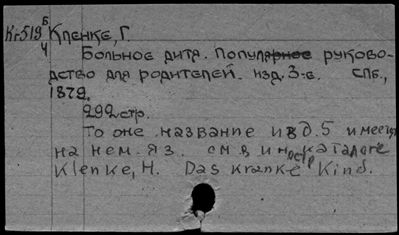 Кг519 Б/4 Кленке, Г.
Больное дитя. Популярное руково-
дство для родителей. изд. 3-е. СПб.,
1879.
292 стр.
То оне. название и в д. 5 имеется
на нем. яз. см. в иностр. каталоге
Klenke, H. Das kranke Kind.